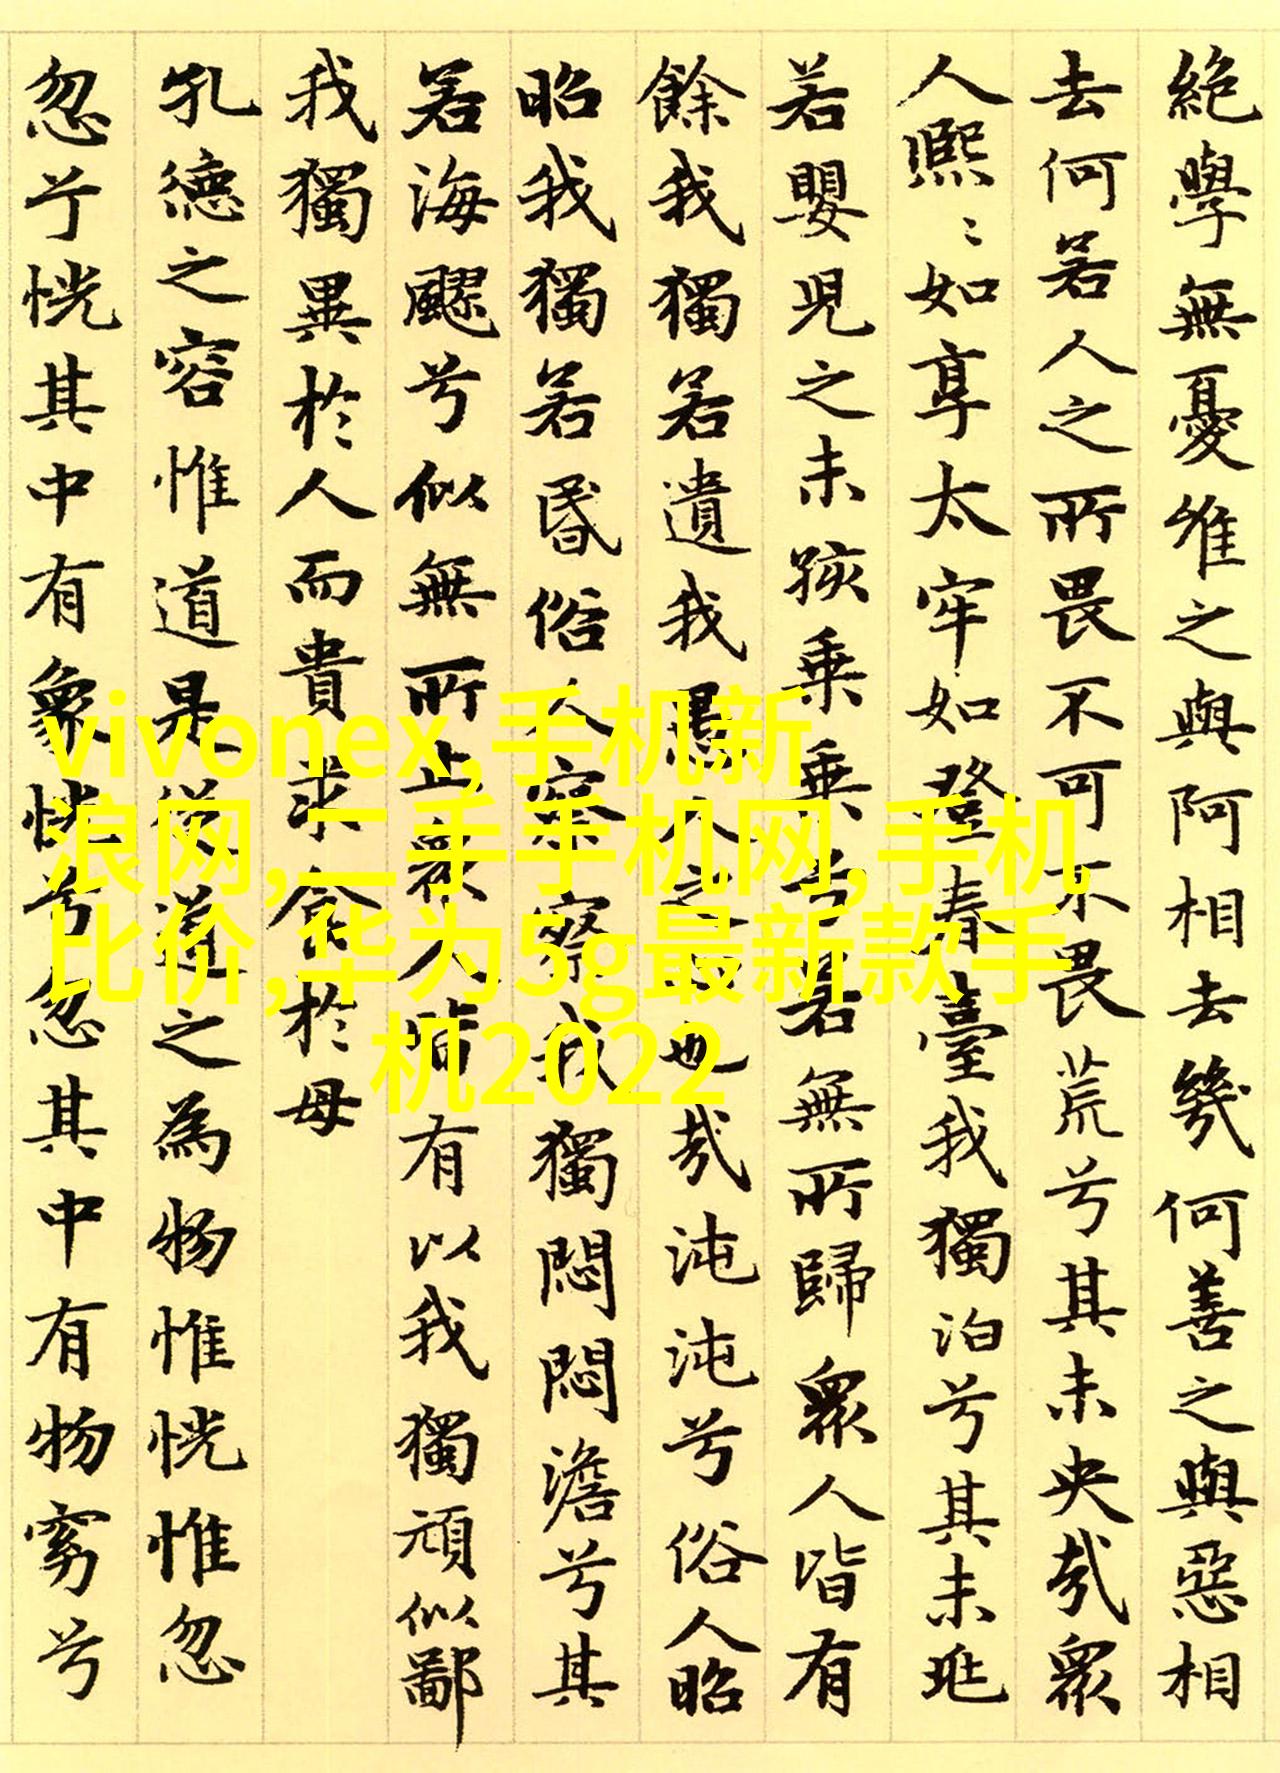 絶學無憂唯之與阿相去幾何善之與惡相
去何若人之所畏不可不畏荒兮其未央哉眾
人熙〻如享太牢如登春臺我獨泊兮其未兆
若嬰兒之未孩乗乗兮若無所歸眾人皆有
餘我獨若遺我愚人之心也哉沌沌兮俗人昭
昭我獨若昬俗人察察我獨悶悶澹兮其
若海飂兮似無所止眾人皆有以我獨頑似鄙
我獨異於人而貴求食於母
孔德之容惟道是從道之為物惟恍惟忽
忽兮恍其中有象恍兮忽其中有物窈兮
vivonex,手机新
浪网,二手手机网,手机
比价,华为5g最新款手
机2022